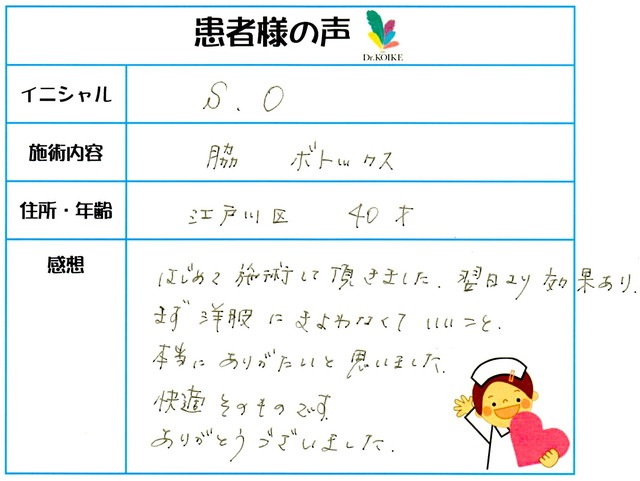 患者様の声
Dr.KOIKE
イニシャル S.O
施術内容 脇 ボトックス
住所・年齢 江戸川区 40才
感想
はじめて施術して頂きました. 翌日より効果あり.
まず洋服にきよわなくていいこと.
本当にありがたいと思いました.
快適そのものです.
ありがとうございました.